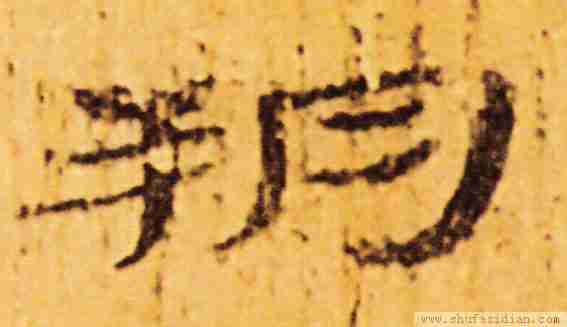 朔
www.shufazidian.com